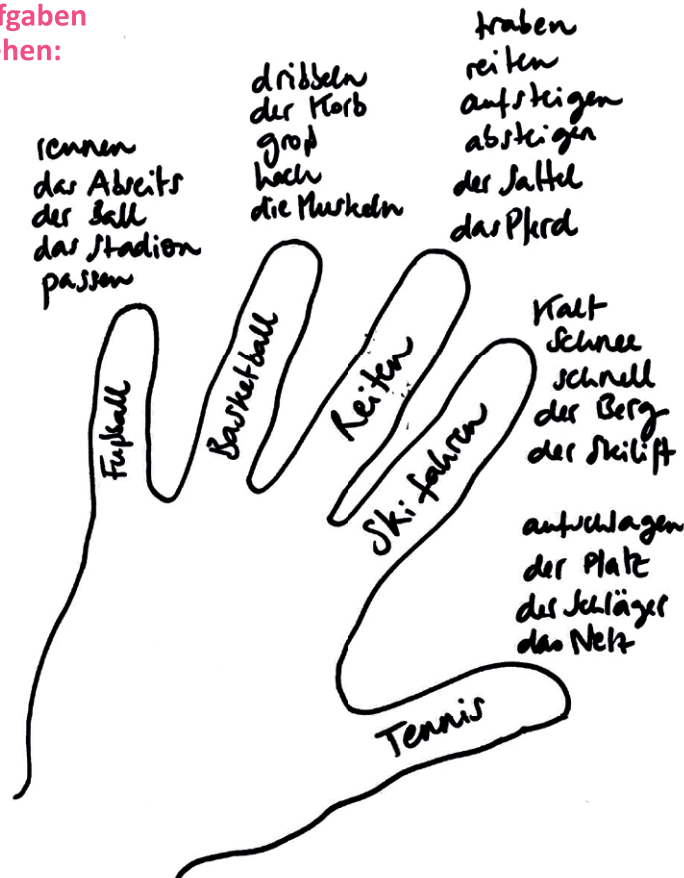 fgaben
hen:
rennen
das Abseits
der Ball
das Stadion
passen
dribbeln
der Korb
groß
hoch
die Muskeln
traben
reiten
aufsteigen
absteigen
der Sattel
das Pferd
kalt
Schnee
schnell
der Berg
der Skilift
aufschlagen
der Platz
der Schläger
das Netz
Fußball
Basketball
Reiten
Skifahren
Tennis